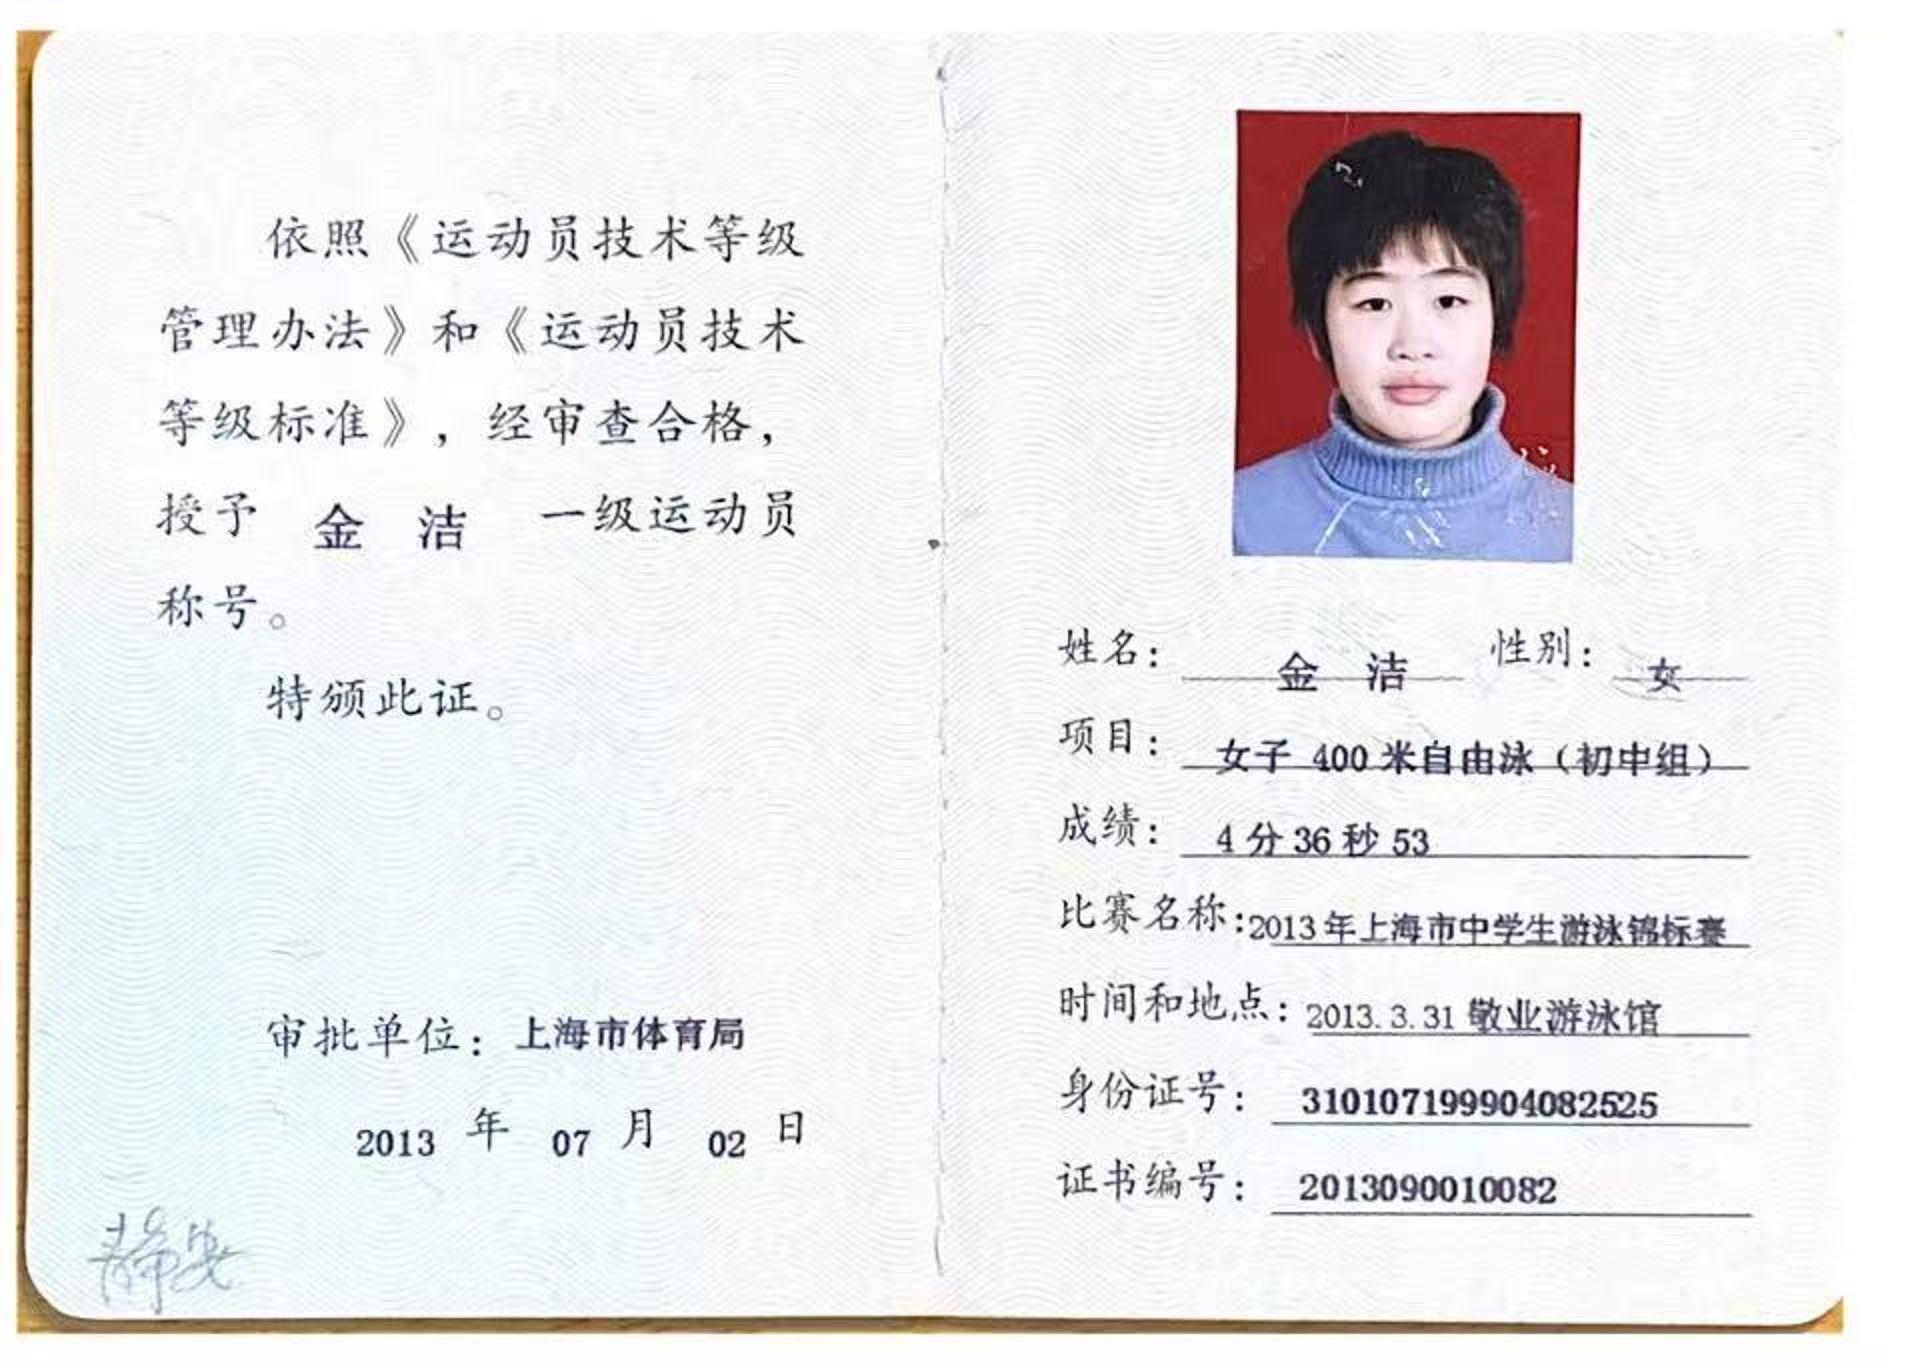 依照《运动员技术等级
管理办法》和《运动员技术
等级标准》，经审查合格，
授予 金 洁 一级运动员
称号。
特颁此证。
审批单位：上海市体育局
2013 年 07 月 02 日
静安
姓名： 金 洁 性别： 女
项目： 女子 400 米自由泳（初中组）
成绩： 4 分 36 秒 53
比赛名称：2013 年上海市中学生游泳锦标赛
时间和地点：2013.3.31 敬业游泳馆
身份证号： 310107199904082525
证书编号： 2013090010082